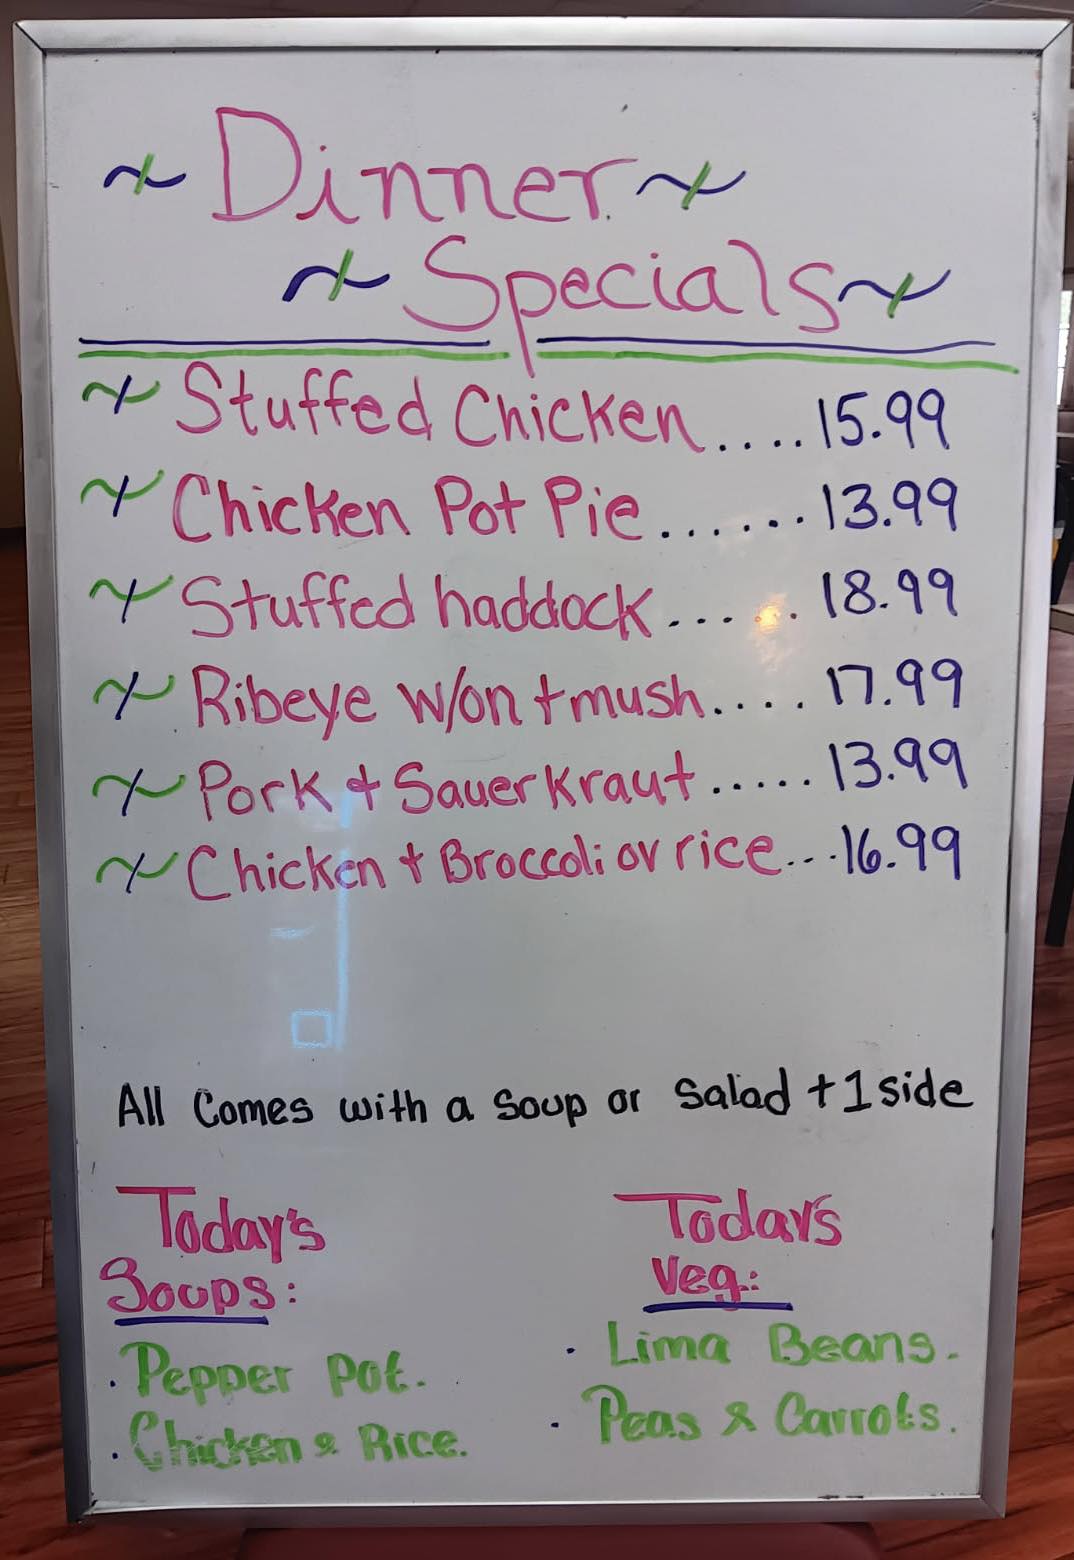 ~ Dinner ~
~ Specials ~
~ Stuffed Chicken .... 15.99
~ Chicken Pot Pie ...... 13.99
~ Stuffed haddock ..... 18.99
~ Ribeye w/on + mush .... 17.99
~ Pork + Sauerkraut ..... 13.99
~ Chicken + Broccoli ov rice ... 16.99
All Comes with a soup or salad + 1 side
Today's
Soups:
· Pepper Pot.
· Chicken & Rice.
Today's
Veg:
· Lima Beans.
· Peas & Carrots.